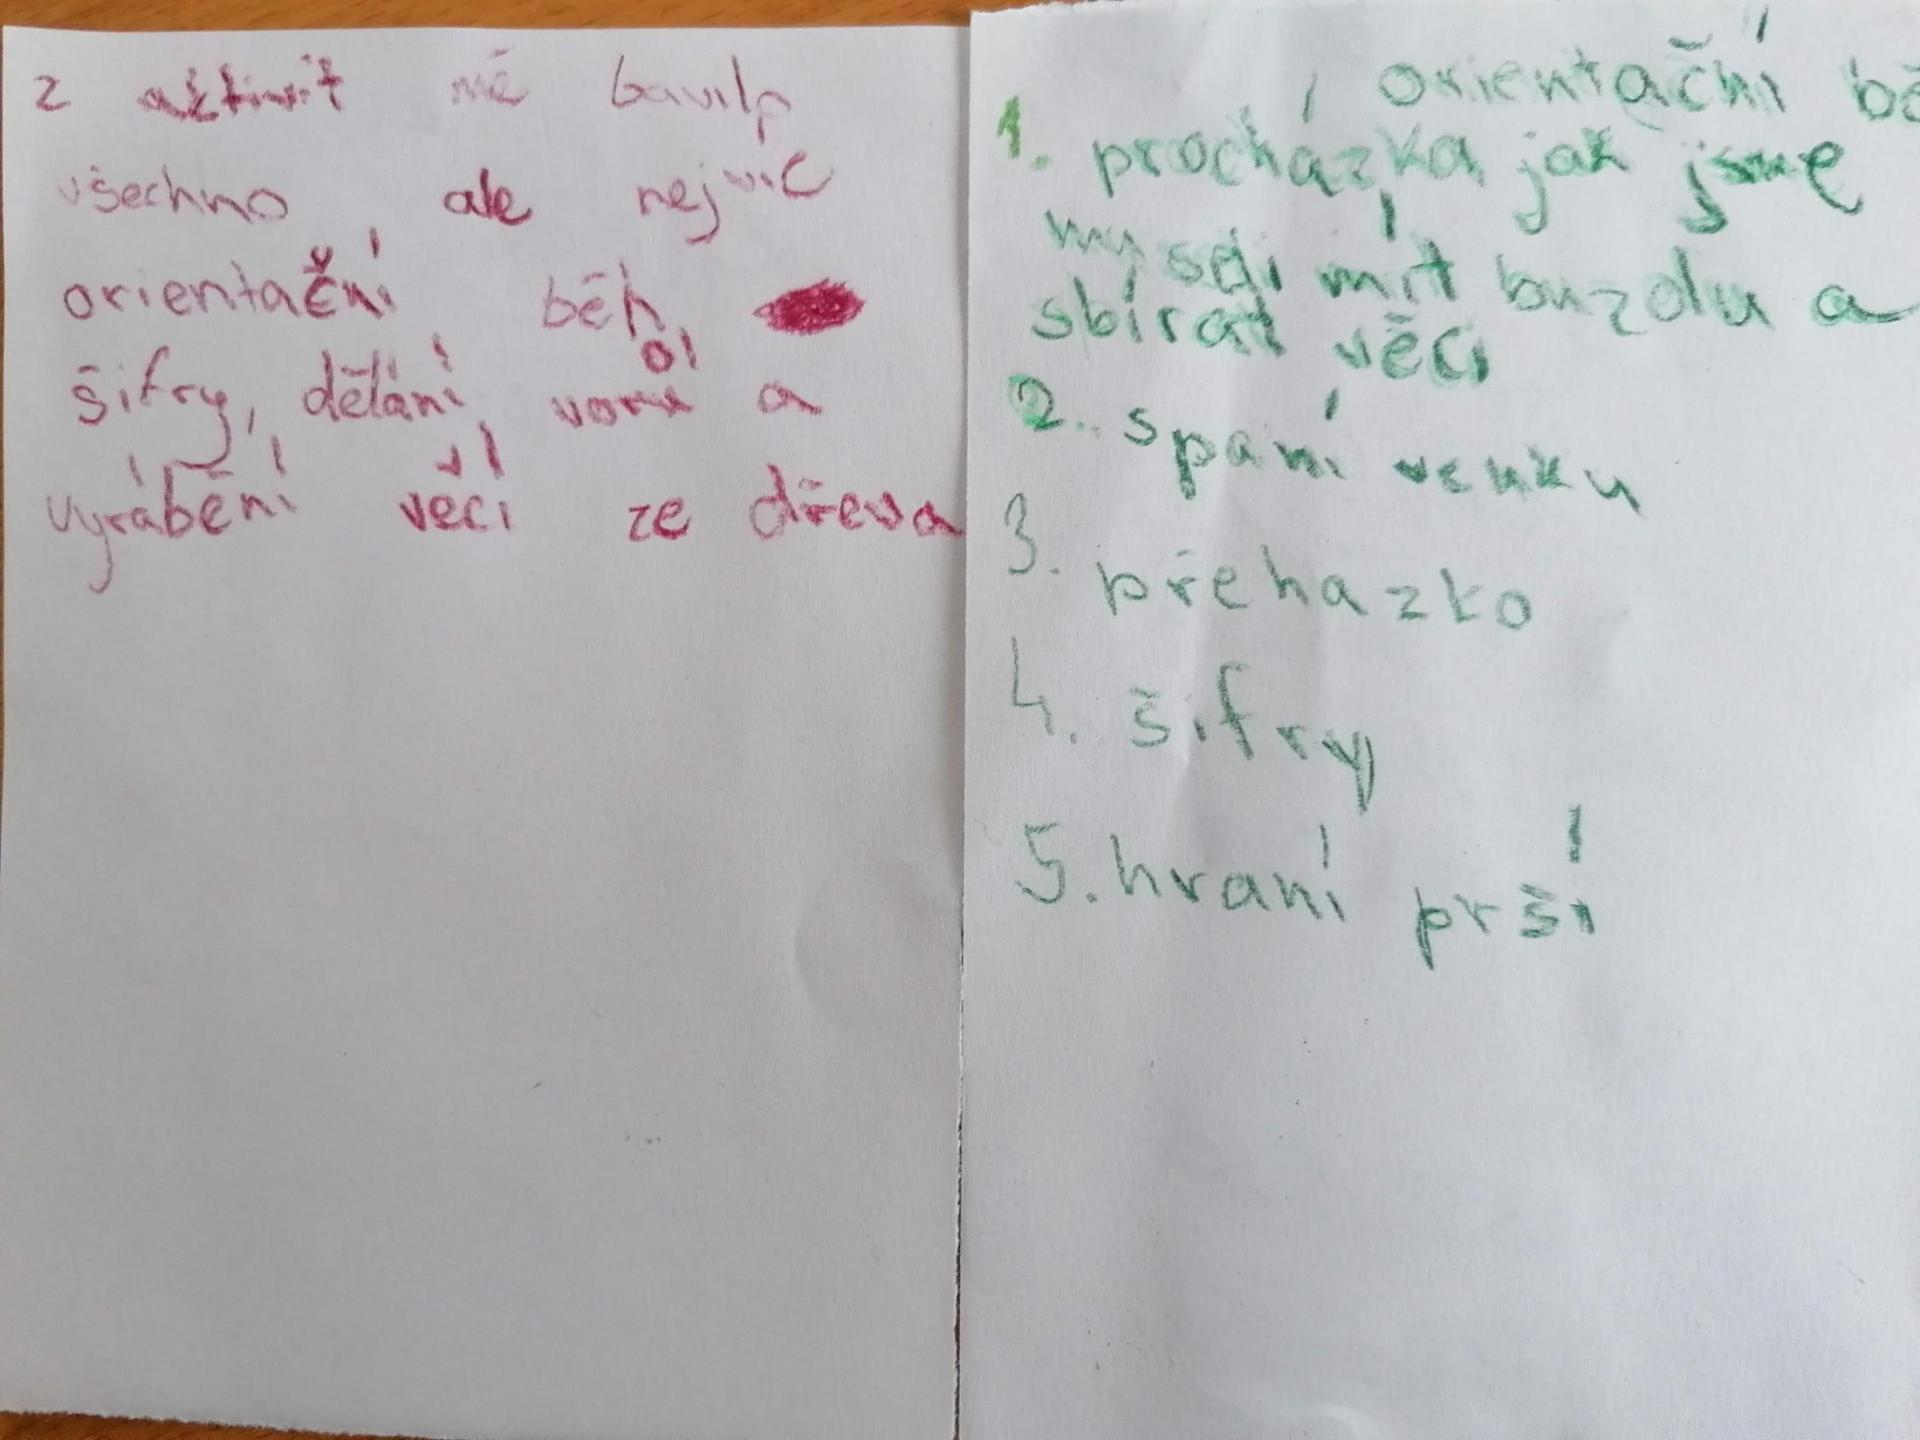 z aktivit mě bavilo
všechno ale nejvíc
orientační běh,
šifry, dělání vorů a
vyrábění věcí ze dřeva
orientační bě
1. procházka jak jsme
myseli mít buzolu a
sbírat věci
2. spaní venku
3. přehazko
4. šifry
5. hraní prší